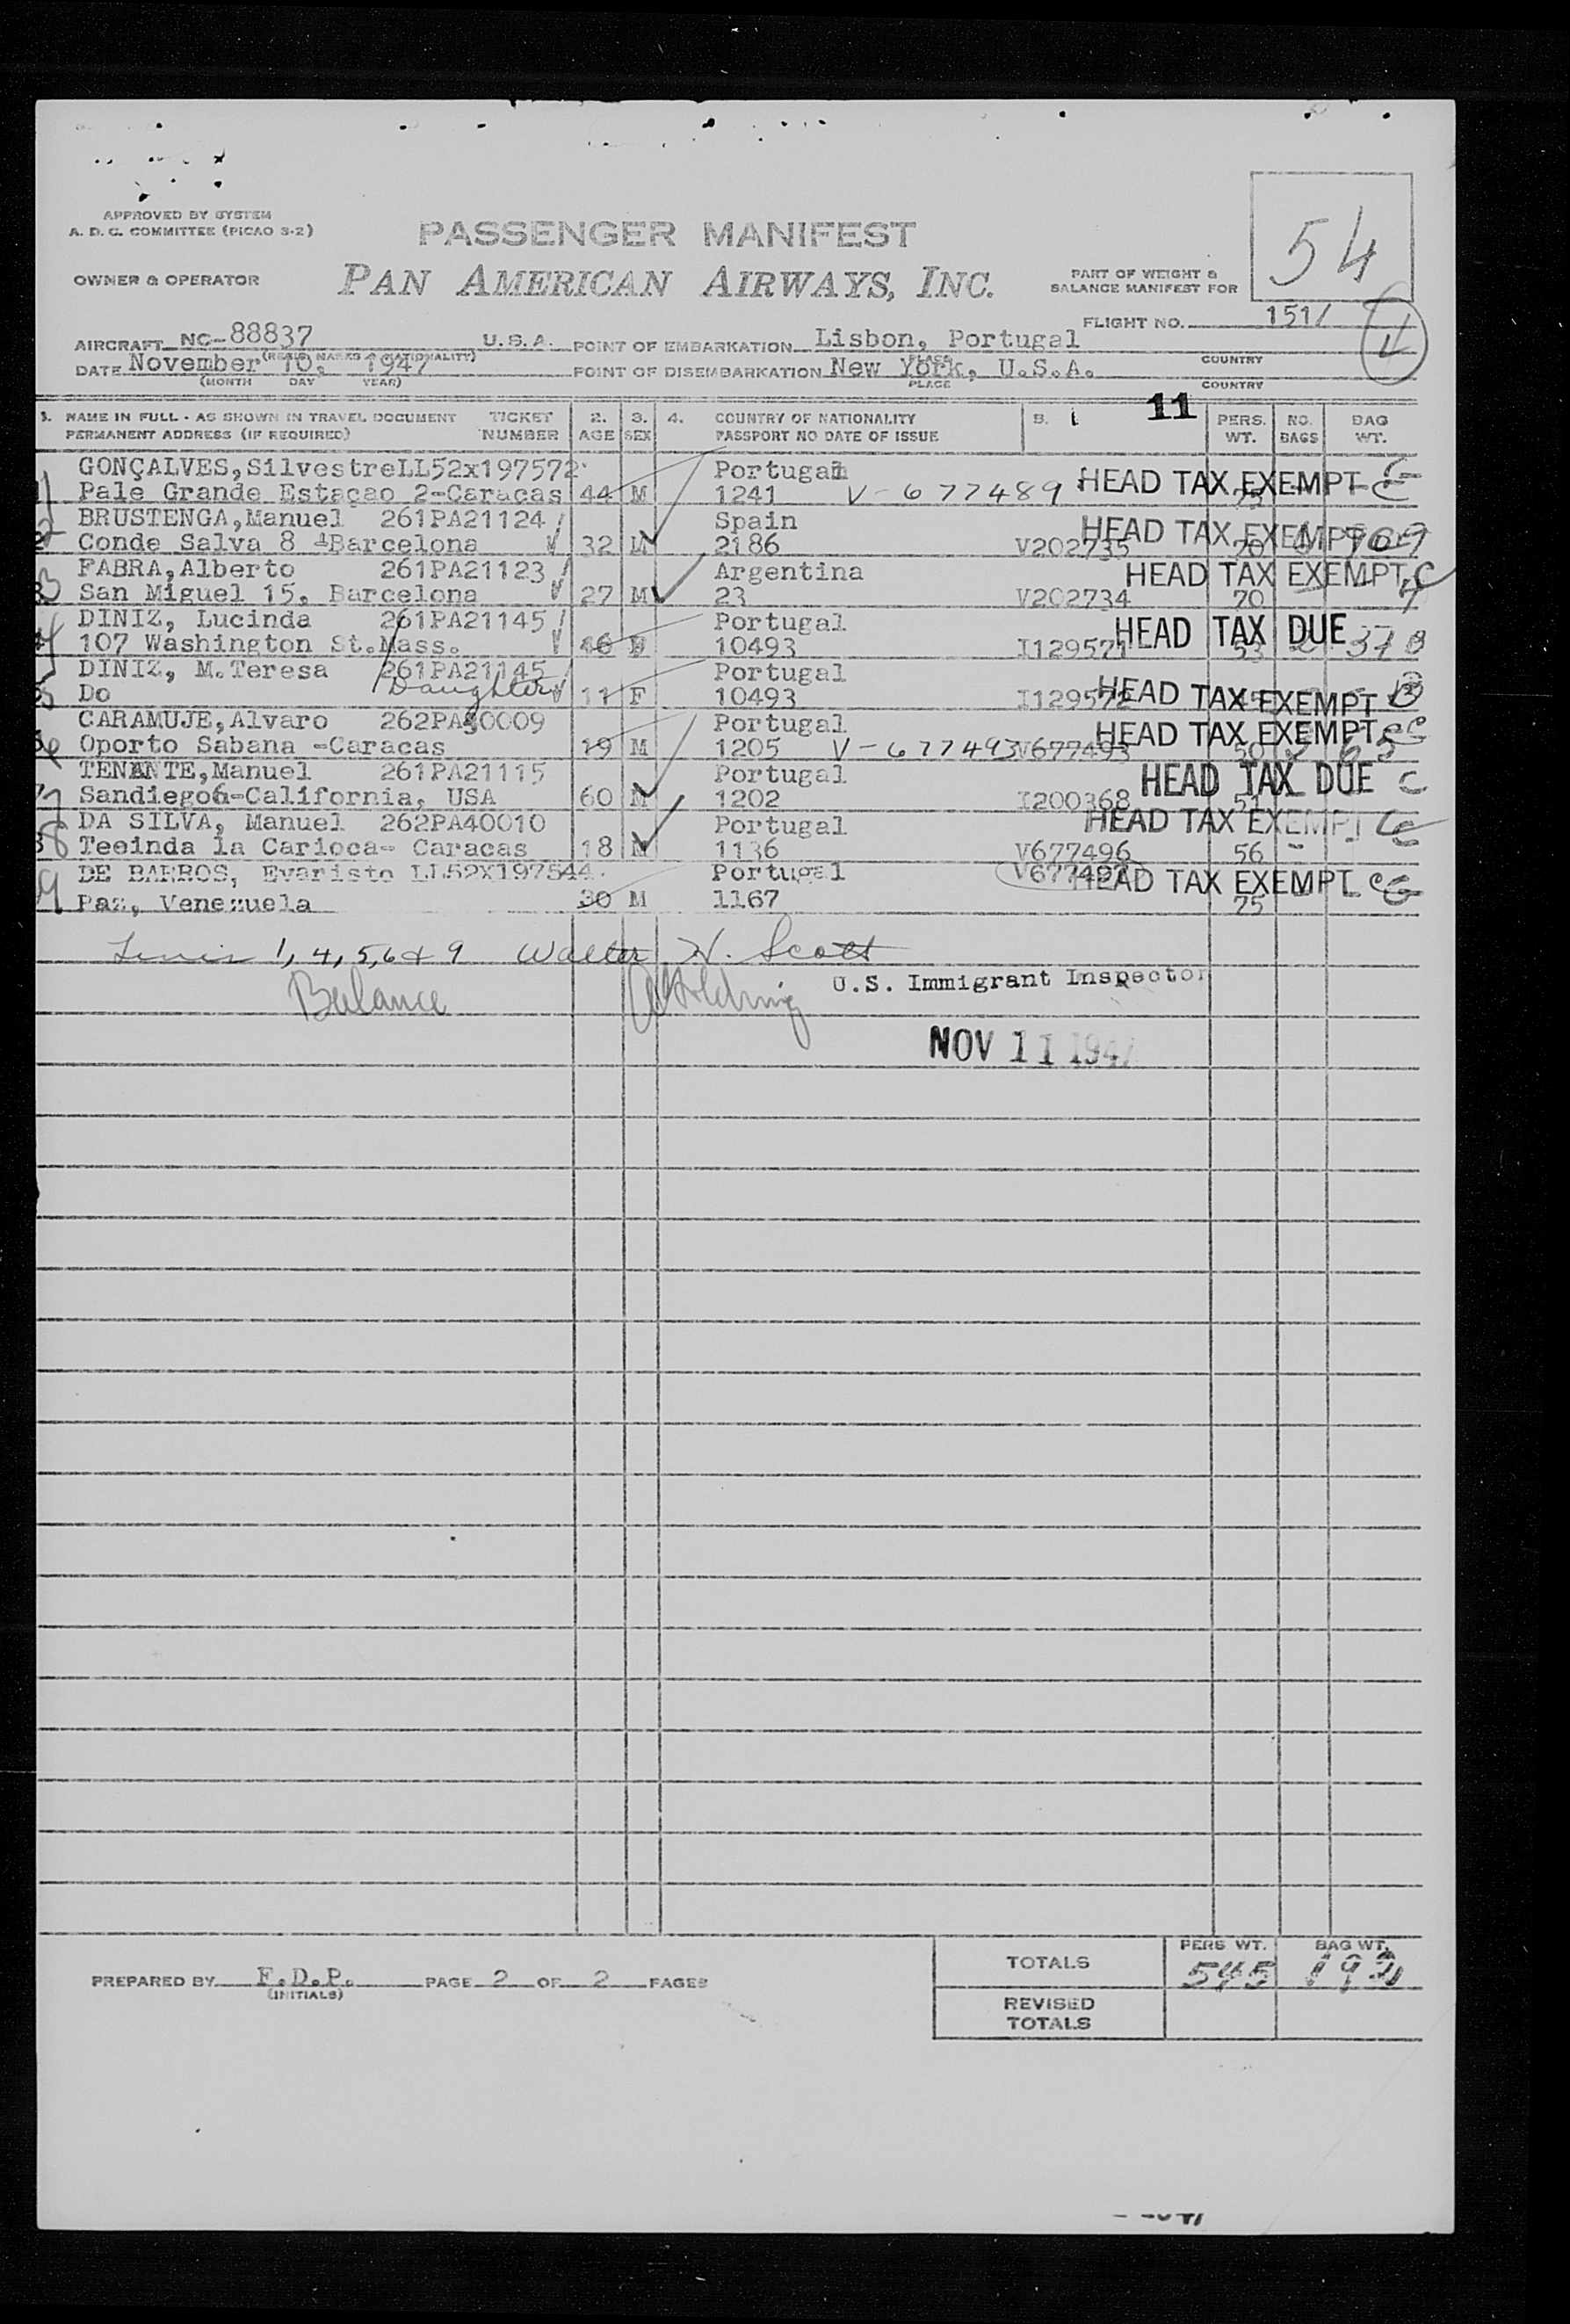 APPROVED BY SYSTEM
A. D. C. COMMITTEE (PICAO S-2)
PASSENGER MANIFEST
54
OWNER & OPERATOR
PAN AMERICAN AIRWAYS, INC.
PART OF WEIGHT &
BALANCE MANIFEST FOR
FLIGHT NO. 151/
AIRCRAFT NC-88837 U.S.A. POINT OF EMBARKATION Lisbon, Portugal
(REGIS MARKS & NATIONALITY) PLACE COUNTRY
DATE November 10, 1947 POINT OF DISEMBARKATION New York, U.S.A.
(MONTH DAY YEAR) PLACE COUNTRY
11
1. NAME IN FULL - AS SHOWN IN TRAVEL DOCUMENT TICKET 2. 3. 4. COUNTRY OF NATIONALITY 5. PERS. NO. BAG
PERMANENT ADDRESS (IF REQUIRED) NUMBER AGE SEX PASSPORT NO DATE OF ISSUE WT. BAGS WT.
GONÇALVES, Silvestre LL52x197572 Portugal HEAD TAX EXEMPT
1 Pale Grande Estaçao 2-Caracas 44 M 1241 V-677489
BRUSTENGA, Manuel 261PA21124 Spain HEAD TAX EXEMPT
2 Conde Salva 8 -Barcelona 32 M 2186 V202735 70
FABRA, Alberto 261PA21123 Argentina HEAD TAX EXEMPT
3 San Miguel 15, Barcelona 27 M 23 V202734 70
DINIZ, Lucinda 261PA21145 Portugal HEAD TAX DUE
4 107 Washington St. Mass. 46 F 10493 I129571 53
DINIZ, M. Teresa 261PA21145 Portugal
5 Do Daughter 11 F 10493 I129572 HEAD TAX EXEMPT
CARAMUJE, Alvaro 262PA30009 Portugal HEAD TAX EXEMPT
6 Oporto Sabana -Caracas 19 M 1205 V-677493 V677493 50
TENANTE, Manuel 261PA21115 Portugal HEAD TAX DUE
7 Sandiego6-California, USA 60 M 1202 I200368 51
DA SILVA, Manuel 262PA40010 Portugal HEAD TAX EXEMPT
8 Teeinda la Carioca- Caracas 18 M 1136 V677496 56
DE BARROS, Evaristo LL52X197544 Portugal V677497 HEAD TAX EXEMPT
9 Paz, Venezuela 30 M 1167 75
Lines 1, 4, 5, 6 & 9 Walter H. Scott
Balance U.S. Immigrant Inspector
NOV 11 1947
TOTALS PERS WT. 545 BAG WT. 192
PREPARED BY F.D.P. PAGE 2 OF 2 PAGES
(INITIALS)
REVISED
TOTALS